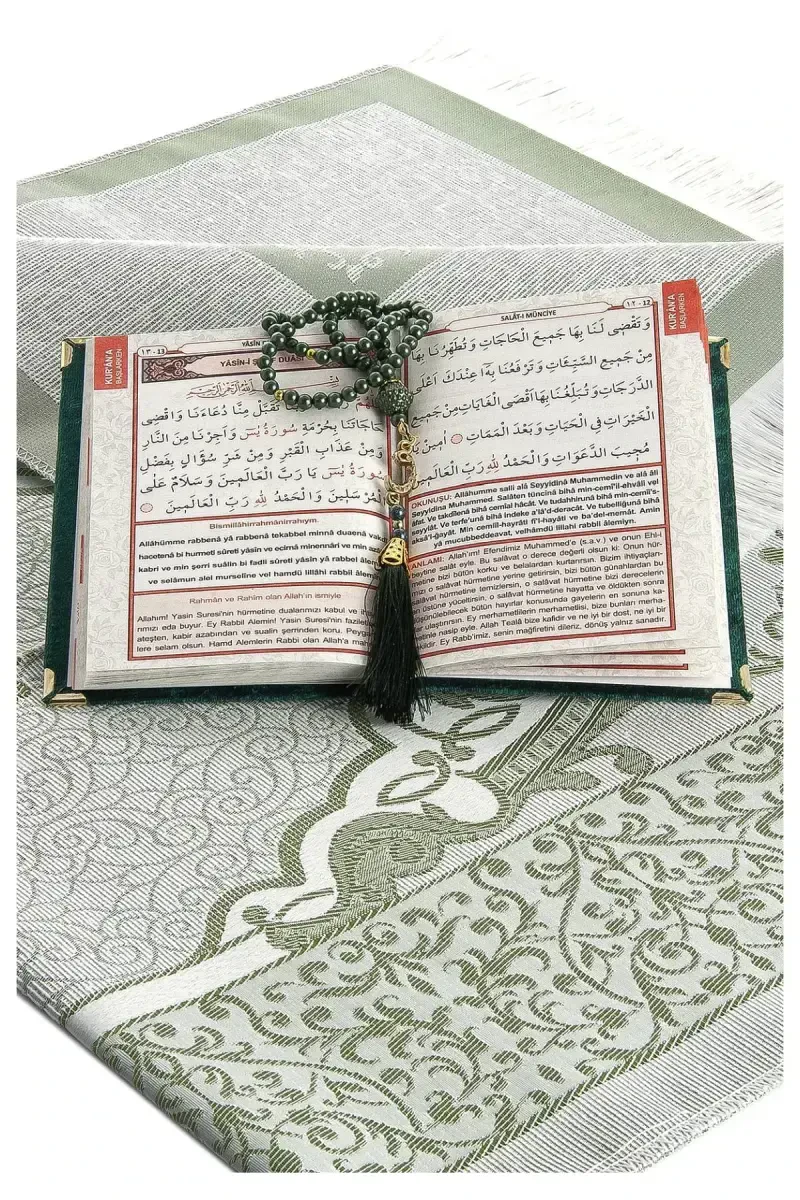 ١٢ - 12
SALÂT-I MÜNCİYE
KUR'AN'A
BAŞLARKEN
وَ تَقْضٖى لَنَا بِهَا جَمٖيعَ الْحَاجَاتِ وَ تُطَهِّرُنَا بِهَا
مِنْ جَمٖيعِ السَّيِّئَاتِ وَ تَرْفَعُنَا بِهَا عِنْدَكَ اَعْلَى
الدَّرَجَاتِ وَ تُبَلِّغُنَا بِهَا اَقْصَى الْغَايَاتِ مِنْ جَمٖيعِ
الْخَيْرَاتِ فِي الْحَيَاتِ وَ بَعْدَ الْمَمَاتِ ۞ اٰمٖينَ يَا
مُجٖيبَ الدَّعَوَاتِ وَ الْحَمْدُ لِلّٰهِ رَبِّ الْعَالَمٖينَ
OKUNUŞU: Allâhumme salli alâ Seyyidinâ Muhammedin ve alâ âli
Seyyidinâ Muhammed. Salâten tüncînâ bihâ min-cemî'il-ehvâli vel
âfat. Ve takdîlenâ bihâ cemîal hâcât. Ve tudahhirunâ bihâ min-cemîi's-
seyyiât. Ve terfe'unâ bihâ indeke a'lâ'd-deracât. Ve tubelliğunâ bihâ
aksâ'l-ğayât. Min cemîil-hayrâti fi'l-hayâti ve ba'del-memât. Amin
yâ mucubbeddeavat, velhâmdü lillahi rabbil âlemiyn.
ANLAMI: Allah'ım! Efendimiz Muhammed'e (s.a.v.) ve onun Ehl-i
beytine salât eyle. Bu salâvat o derece değerli olsun ki: Onun hür-
metine bizi bütün korku ve belalardan kurtarırsın. Bizim ihtiyaçları-
mızı o salâvat hürmetine yerine getirsin, bizi bütün günahlardan bu
salâvat hürmetine temizlersin, o salâvat hürmetine bizi derecelerin
en üstüne yüceltirsin, o salâvat hürmetine hayatta ve öldükten sonra
düşünülebilecek bütün hayırlar konusunda gayelerin en sonuna ka-
dar ulaştırırsın. Ey merhametlilerin merhametlisi, bize bunları merha-
metinle nasip eyle. Allah Tealâ bize kafidir ve ne iyi bir dost, ne iyi bir
Ey Rabb'imiz, senin mağfiretini dileriz, dönüş yalnız sanadır.
١٣ - 13
YÂSİN
KUR'AN'A
BAŞLARKEN
YÂSÎN-İ DUASI
بِسْمِ اللّٰهِ الرَّحْمٰنِ الرَّحٖيمِ
تَقَبَّلْ مِنَّا دُعَاءَنَا وَ اقْضِ
حَاجَاتِنَا بِحُرْمَةِ سُورَةُ يٰسٓ وَ اَجِرْنَا مِنَ النَّارِ
وَ مِنْ عَذَابِ الْقَبْرِ وَ مِنْ شَرِّ سُؤَالٍ بِفَضْلِ
سُورَةُ يٰسٓ يَا رَبَّ الْعَالَمٖينَ وَ سَلَامٌ عَلَى
الْمُرْسَلٖينَ وَ الْحَمْدُ لِلّٰهِ رَبِّ الْعَالَمٖينَ ۞
Bismillâhirrahmânirrahıym.
Allâhümme rabbenâ yâ rabbenâ tekabbel minnâ duaenâ vakd
hacetenâ bi hurmeti sûreti yâsîn ve ecirnâ minennâri ve min aza
kabri ve min şerri suâlin bi fadli sûreti yâsîn yâ rabbel âlem
ve selâmun alel murselîne vel hamdü lillâhi rabbil âlem
Rahmân ve Rahîm olan Allah'ın ismiyle
Allahım! Yasin Suresi'nin hürmetine dualarımızı kabul ve ih
rımızı eda buyur. Ey Rabbil Alemin! Yasin Suresi'nin fazilet
ateşten, kabir azabından ve sualin şerrinden koru. Peyga
lere selam olsun. Hamd Alemlerin Rabbi olan Allah'a mah